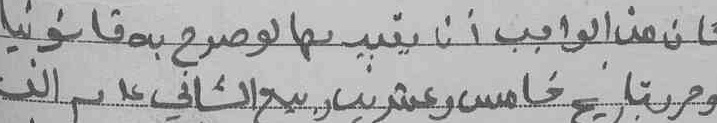 كان من الواجب أن يقيد بها لوصرح به قانونيا
وحرر بتاريخ خامس وعشرين ربيع الثاني عام الف